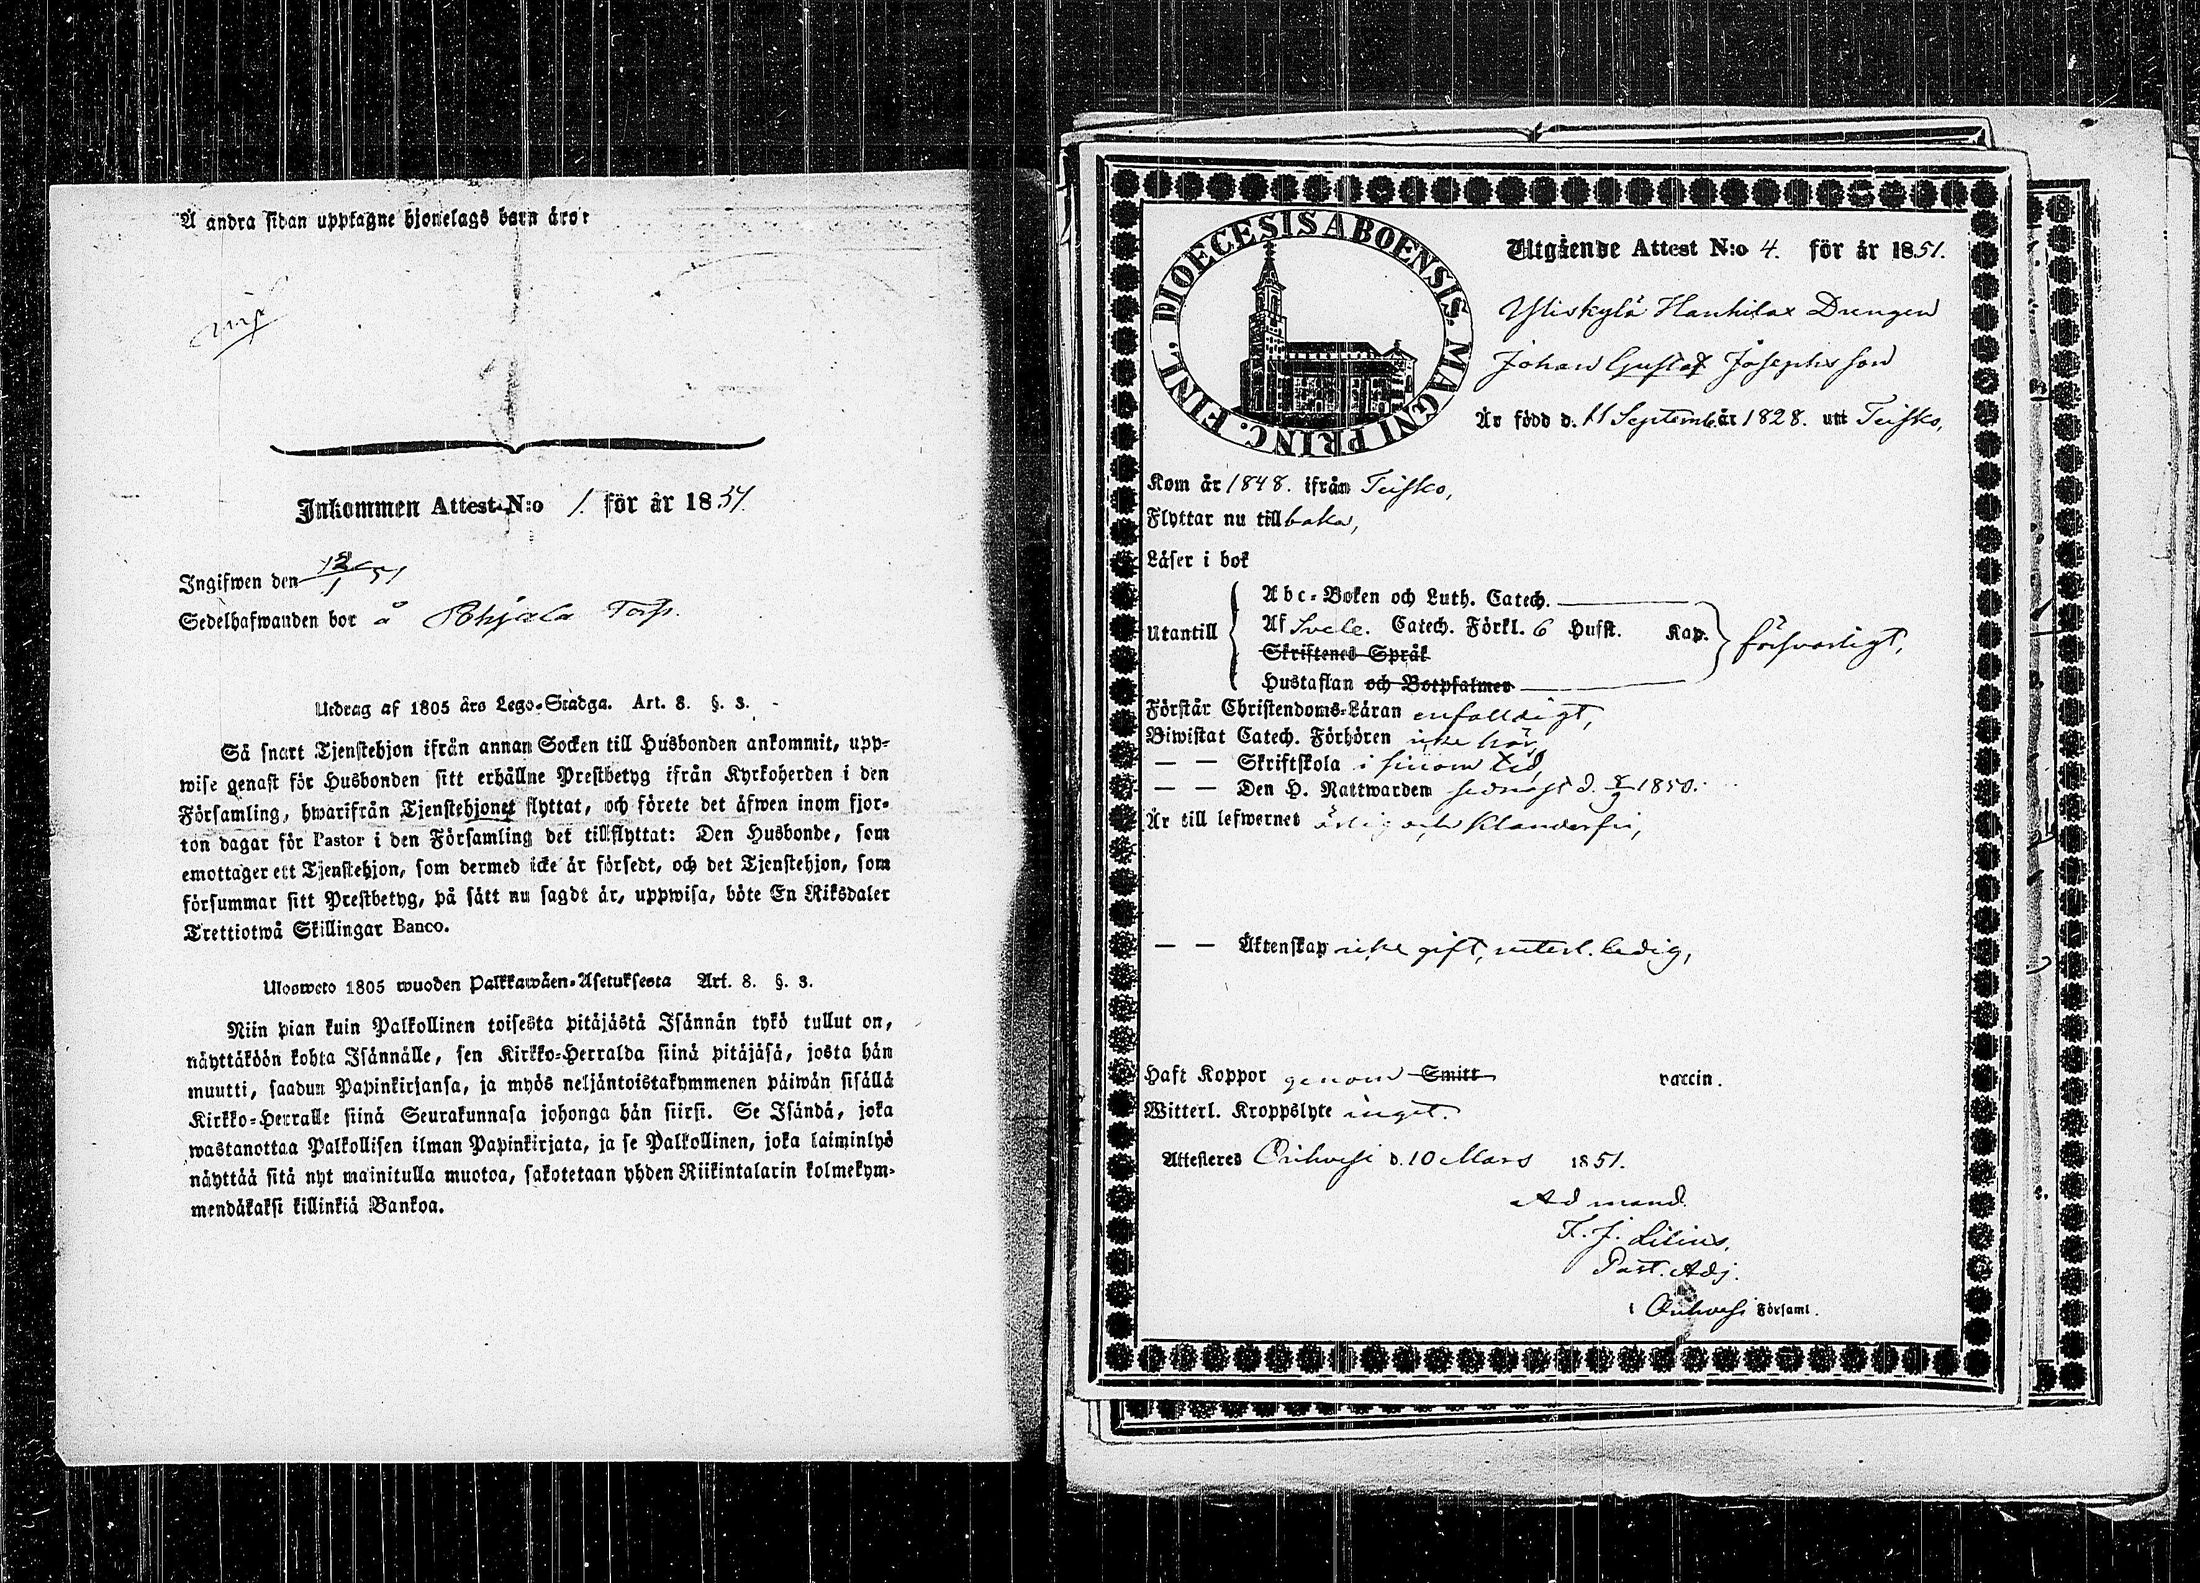 Å andra sidan upptagne hjonelags barn äro:
Inkommen Attest N:o 1. för år 1851.
Ingifwen den 12/1 51
Sedelhafwanden bor å Pohjala Torp.
Utdrag af 1805 års Lego-Stadga. Art. 8. §. 3.
Så snart Tjenstehjon ifrån annan Socken till Husbonden ankommit, upp-
wise genast för Husbonden sitt erhållne Prestbetyg ifrån Kyrkoherden i den
Församling, hwarifrån Tjenstehjonet flyttat, och förete det äfwen inom fjor-
ton dagar för Pastor i den Församling det tillflyttat: Den Husbonde, som
emottager ett Tjenstehjon, som dermed icke är försedt, och det Tjenstehjon, som
försummar sitt Prestbetyg, på sätt nu sagdt är, uppwisa, böte En Riksdaler
Trettiotwå Skillingar Banco.
Ulosweto 1805 wuoden Palkkawäen-Asetuksesta Art. 8. §. 3.
Niin pian kuin Palkollinen toisesta pitäjästä Isännän tykö tullut on,
näyttäköön kohta Isännälle, sen Kirkko-Herralda siinä pitäjäsä, josta hän
muutti, saadun Papinkirjansa, ja myös neljäntoistakymmenen päiwän sisällä
Kirkko-Herralle siinä Seurakunnasa johonga hän siirsi. Se Isändä, joka
wastanottaa Palkollisen ilman Papinkirjata, ja se Palkollinen, joka laiminlyö
näyttää sitä nyt mainitulla muotoa, sakotetaan yhden Riikintalarin kolmekym-
mendäkaksi killinkiä Bankoa.
DIOECESIS ABOENSIS. MAGNI PRINC. FINL.
Utgående Attest N:o 4. för år 1851.
Yliskylä Hanhilax Drengen
Johan Gustaf Josephsson
Är född d. 11 September år 1828. uti Teisko,
Kom år 1848. ifrån Teisko,
Flyttar nu tillbaka,
Läser i bok
Abc-Boken och Luth. Catech.
Utantill Af Svele. Catech. Förkl. 6 Hufst. Kap. försvarligt,
Skriftenes Språk
Hustaflan och Botpsalmer
Förstår Christendoms-Läran enfalldigt,
Biwistat Catech. Förhören icke här,
— — Skriftskola i sinom tid
— — Den H. Nattwarden sednast d. 8/9 1850.
Är till lefwernet ärlig och klanderfri,
— — Äktenskap icke gift, veterl. ledig,
Haft Koppor genom Smitt vaccin.
Witterl. Kroppslyte inget.
Attesteres Orihvesi d. 10 Mars 1851.
Ad mand.
F. J. Lilius,
Past. Adj.
i Orihvesi Församl.